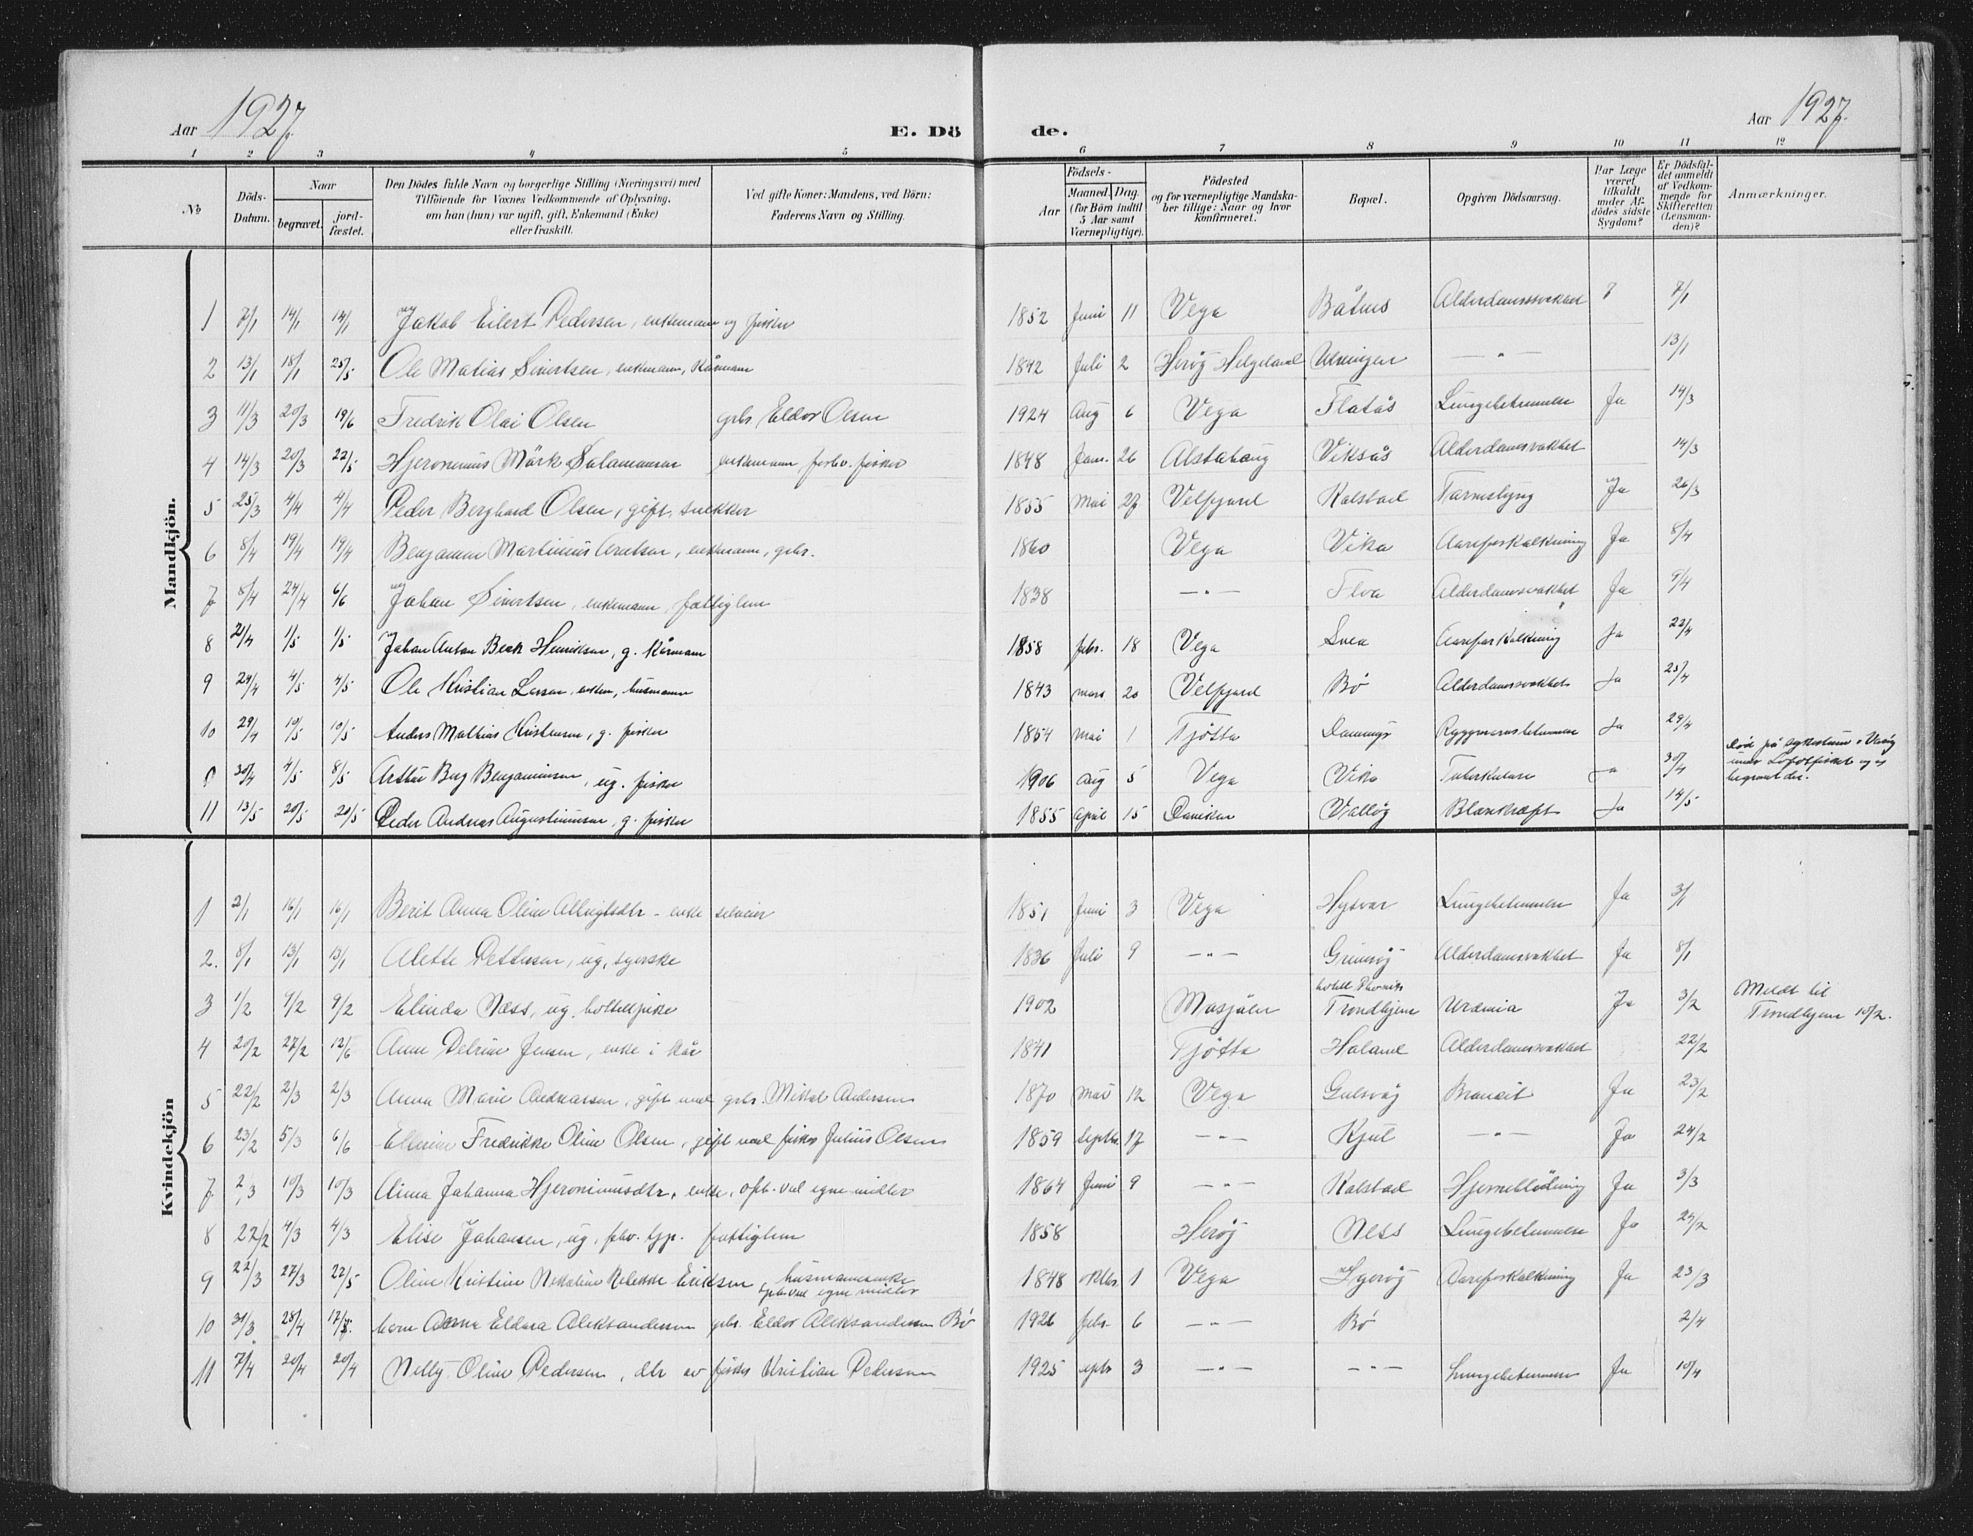 Aar 1927. E. Dö de. Aar 1927.
1 2 3 4 5 6 7 8 9 10 11 12
No
Döds-Datum.
Naar
begravet.
jord-fæstet.
Den Dödes fulde Navn og borgerlige Stilling (Næringsvei) med
Tilföiende for Voxnes Vedkommende af Oplysning,
om han (hun) var ugift, gift, Enkemand (Enke)
eller fraskilt.
Ved gifte Koner: Mandens, ved Börn:
Faderens Navn og Stilling.
Födsels-
Aar
Maaned
Dag
(for Börn indtil
5 Aar samt
Værnepligtige).
Födested
og for værnepligtige Mandska-
ber tillige: Naar og hvor
konfirmeret.
Bopæl.
Opgiven Dödsaarsag.
Har Læge
været
tilkaldt
under Af-
dödes sidste
Sygdom?
Er Dödsfal-
det anmeldt
af Vedkom-
mende for
Skifteretten
(Lensman-
den)?
Anmærkninger.
Mandkjön.
1 7/1 14/1 14/1 Jakob Eilert Pedersen, enkemann og fisker 1852 Juni 11 Vega Båtnes Alderdomssvakhet 7/1
2 13/1 18/1 25/5 Ole Matias Sivertsen, enkemann, Kårmann 1842 Juli 2 Herøy Helgeland Ulvingen — " — 13/1
3 11/3 20/3 19/6 Fredrik Olai Olsen gbr. Eldor Olsen 1924 Aug 6 Vega Flatås Lungebetennelse Ja 14/3
4 14/3 20/3 22/5 Hjeronimus Mörk Salamonsen enkemann, forhv. fisker 1848 Jan. 26 Alstahaug Viksås Alderdomsvakhet 14/3
5 25/3 4/4 4/4 Peder Berghard Olsen, gift, snekker 1855 Mai 27 Velfjord Kalstad Tarmslyng Ja 26/3
6 8/4 19/4 19/4 Benjamin Martinius Arntsen, enkemann, gbr. 1860 Vega Vika Aareforkalkning Ja 8/4
7 8/4 24/4 6/6 Johan Sivertsen, enkemann, fattiglem 1838 — " — Floa Alderdomsvakhet Ja 9/4
8 21/4 1/5 1/5 Johan Anton Beck Henriksen, g. Kårmann 1858 febr. 18 Vega Svea Aareforkalkning Ja 22/4
9 24/4 4/5 4/5 Ole Kristian Larsen, enkem, husmann 1843 mars 20 Velfjord Bø Alderdomsvakhet Ja 25/4
10 29/4 10/5 10/5 Anders Mathias Kristensen, g. fisker 1854 mai 1 Tjøtta Ryggmarvsbetennelse Ja 29/4
30/4 4/5 8/5 Arthur Berg Benjaminsen, ug. fisker 1906 Aug 5 Vega Vika Tuberkulose Ja 30/4 Død på sykestue i Værøy
under Lofotfisket og
begravet der.
11 13/5 20/5 20/5 Peder Andreas Augustinussen, g. fisker 1855 april 15 Dønnes Valløy Blærekræft Ja 14/5
Kvindekjön
1 2/1 16/1 16/1 Berit Anna Oline Albrigtsdtr - enke 1851 Juni 3 Vega Hysvær Lungebetennelse Ja 3/1
2. 8/1 13/1 13/1 Alette Pettersen, ug, syerske 1836 Juli 9 — " — Grimsøy Alderdomsvakhet Ja 8/1
3 1/2 9/2 9/2 Elinda Næss, ug. hotellpike 1902 Mosjøen hotell Phønix
Trondhjem Uræmia Ja 3/2 Meldt til
Trondhjem 10/2.
4 20/2 27/2 12/6 Anne Jensen, enke i kår 1841 Tjøtta Holand Alderdomssvakhet 22/2
5 22/2 2/3 2/3 Anna Marie Andreassen, gift med gbr. Mikal Andersen 1870 mai 12 Vega Gulsvåg Ja 23/2
6 23/2 5/3 6/6 Fredrikke Oline Olsen, gift med fisker Julius Olsen 1859 septbr. 17 — " — Kjul — " — Ja 24/2
7 2/3 10/3 10/3 Anna Johanna Hjeronimusdtr, enke, oph. ved egne midler 1864 Juni 9 — " — Kalstad Hjerneblödning Ja 3/3
8 22/2 4/3 4/3 Elise Johansen, ug, fhv. tjp. fattiglem 1858 Herøy Ness Lungebetennelse Ja 24/2
9 22/3 27/3 22/5 Oline Kristine Eriksen, husmannsenke
oph. ved egne midler 1848 oktbr 1 Vega Aareforkalkning Ja 23/3
10 31/3 28/4 Anna Eldora Aleksandersen gbr. Eldor Aleksandersen Bø 1926 febr. 6 — " — Bø 2/4
11 7/4 20/4 20/4 Nelly Oline Pedersen, dtr av fisker Kristian Pedersen 1925 3 — " — — " — Lungebetennelse Ja 10/4